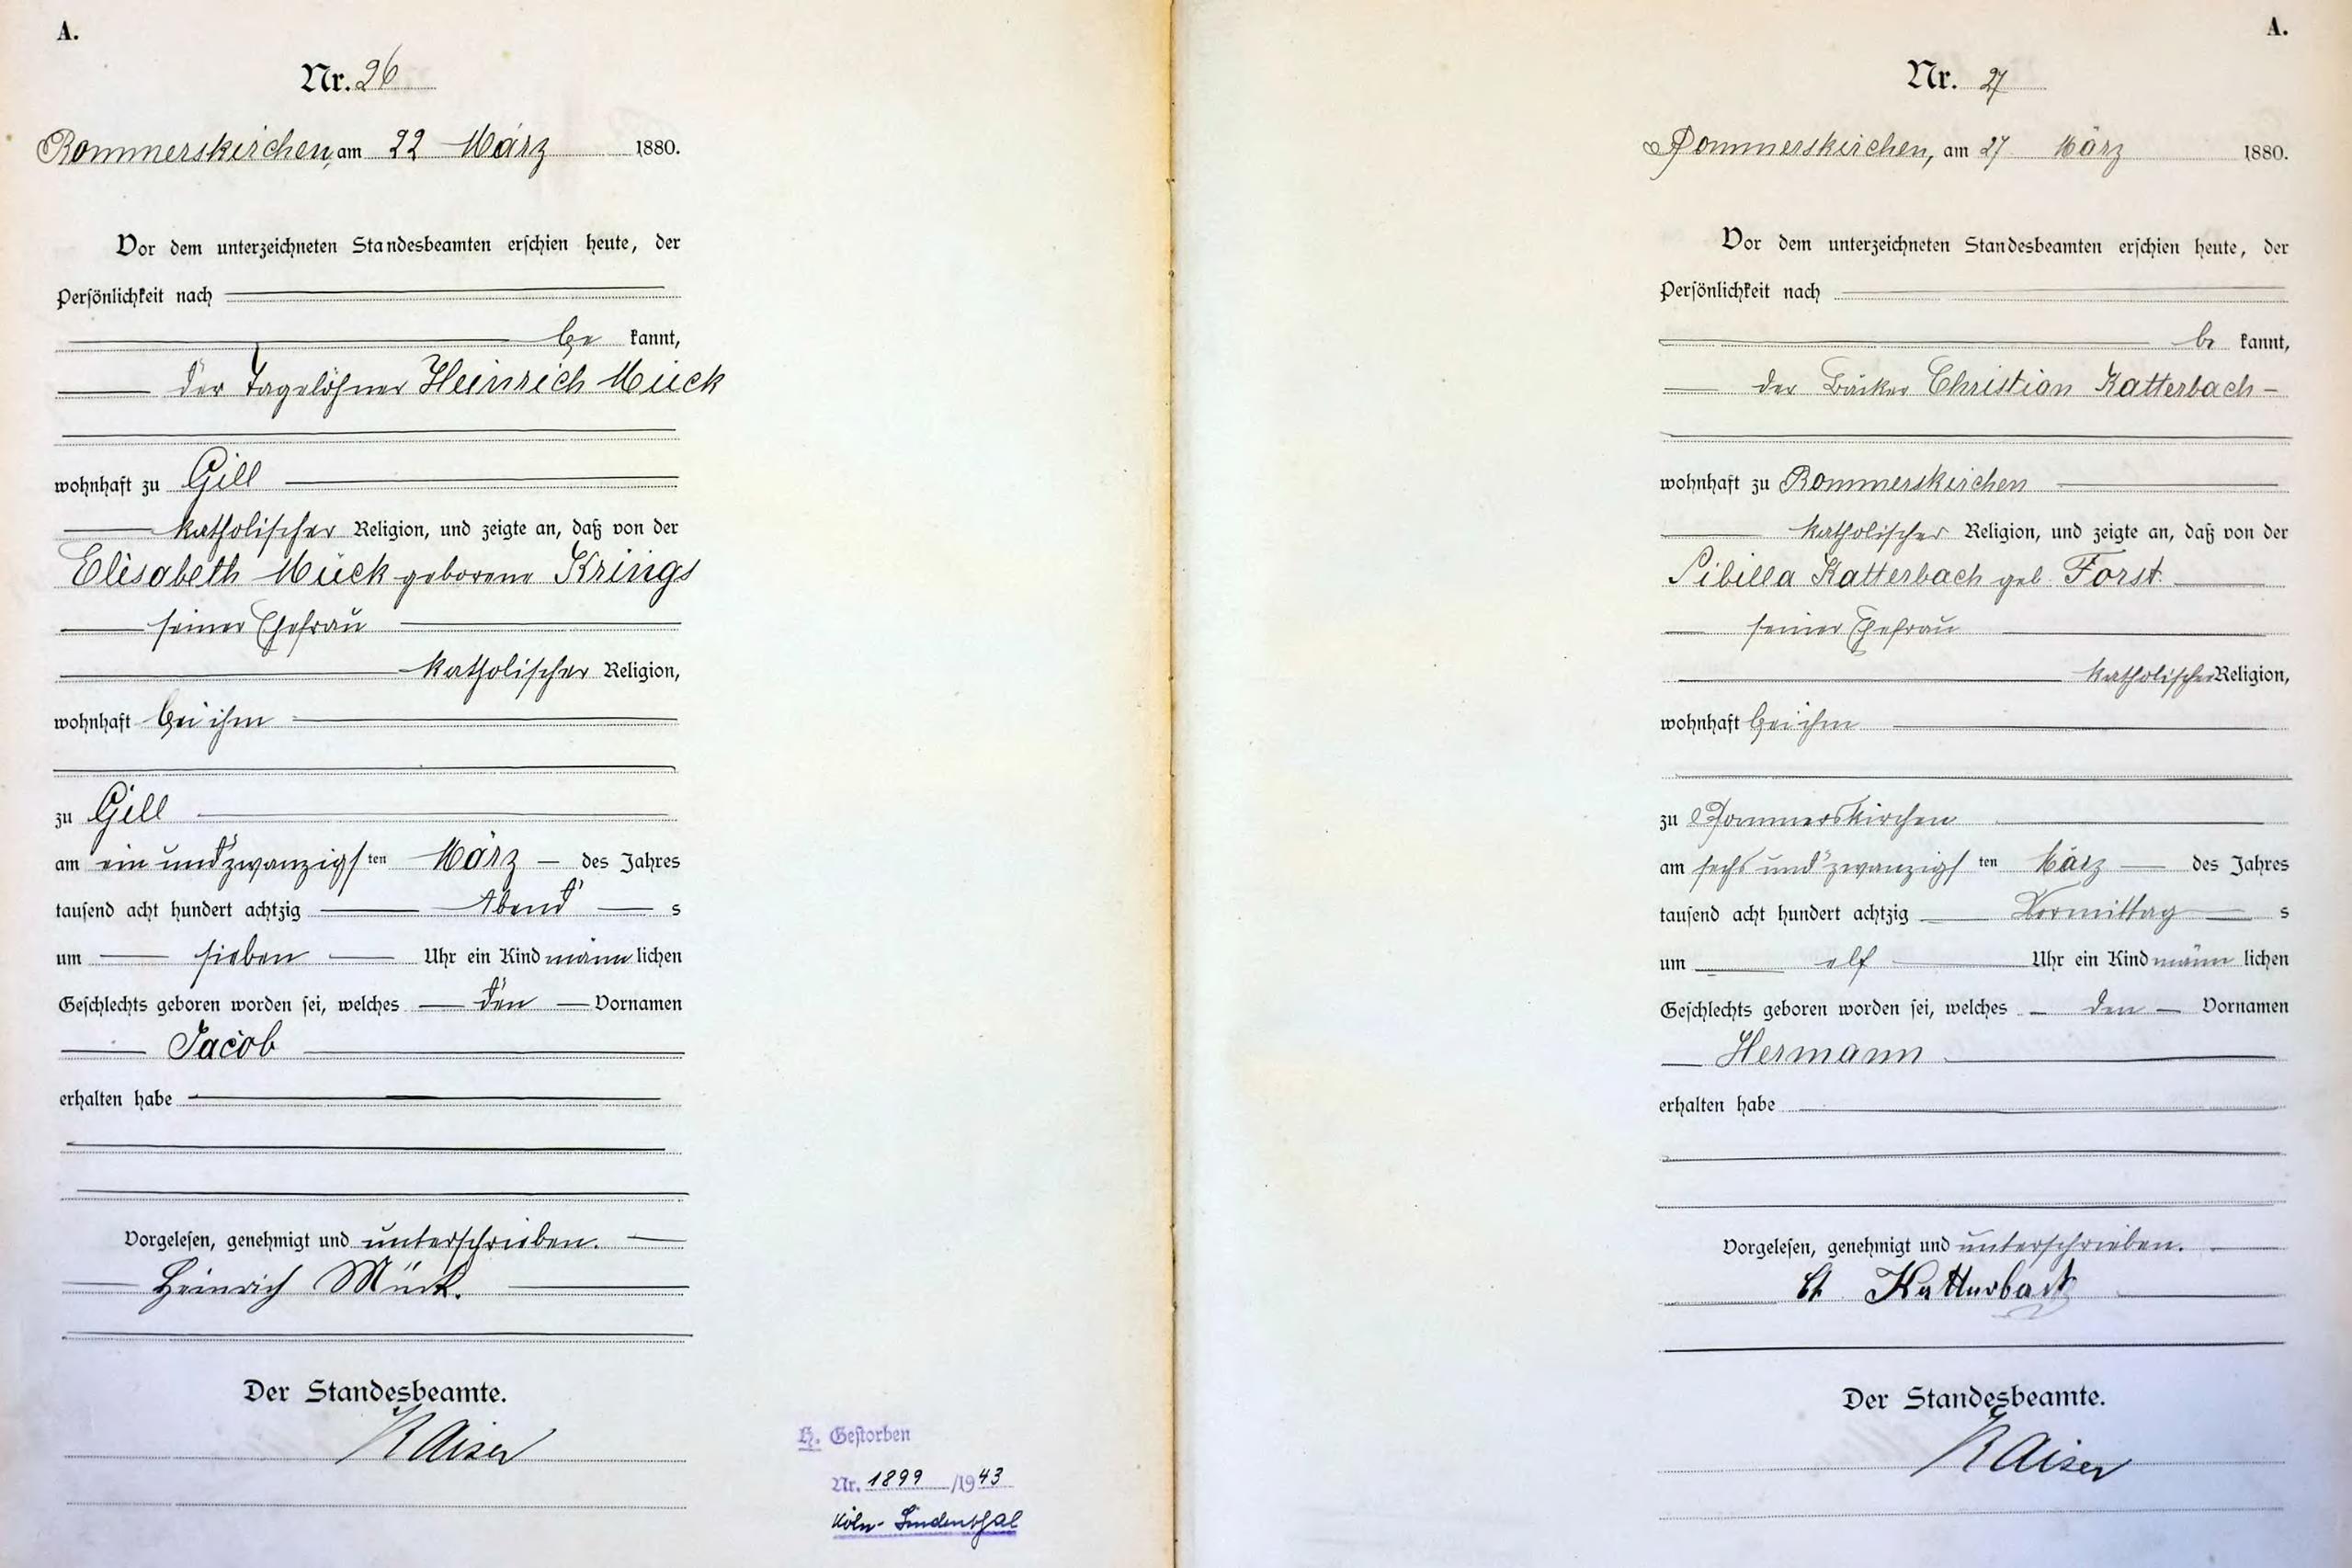 A.
Nr. 26
Rommerskirchen, am 22 März 1880.
Vor dem unterzeichneten Standesbeamten erschien heute, der
Persönlichkeit nach
be kannt,
der Tagelöhner Heinrich Mück
wohnhaft zu Gill
katholischer Religion, und zeigte an, daß von der
Elisabeth Mück geborene Krings
seiner Ehefrau
katholischer Religion,
wohnhaft bei ihm
zu Gill
am ein und zwanzigs ten März des Jahres
tausend acht hundert achtzig Abend s
um sieben Uhr ein Kind männ lichen
Geschlechts geboren worden sei, welches den Vornamen
Jacob
erhalten habe
Vorgelesen, genehmigt und unterschrieben.
Heinrich Mück.
Der Standesbeamte.
Kaiser
H. Gestorben
Nr. 1899 /1943
Köln-Lindenthal
A.
Nr. 27
Rommerskirchen, am 27 März 1880.
Vor dem unterzeichneten Standesbeamten erschien heute, der
Persönlichkeit nach
be kannt,
der Bäcker Christian Katterbach
wohnhaft zu Rommerskirchen
katholischer Religion, und zeigte an, daß von der
Sibilla Katterbach geb. Forst.
seiner Ehefrau
katholischer Religion,
wohnhaft bei ihm
zu Rommerskirchen
am sechs und zwanzigs ten März des Jahres
tausend acht hundert achtzig Vormittag s
um elf Uhr ein Kind männ lichen
Geschlechts geboren worden sei, welches den Vornamen
Hermann
erhalten habe
Vorgelesen, genehmigt und unterschrieben.
Ch Katterbach
Der Standesbeamte.
Kaiser